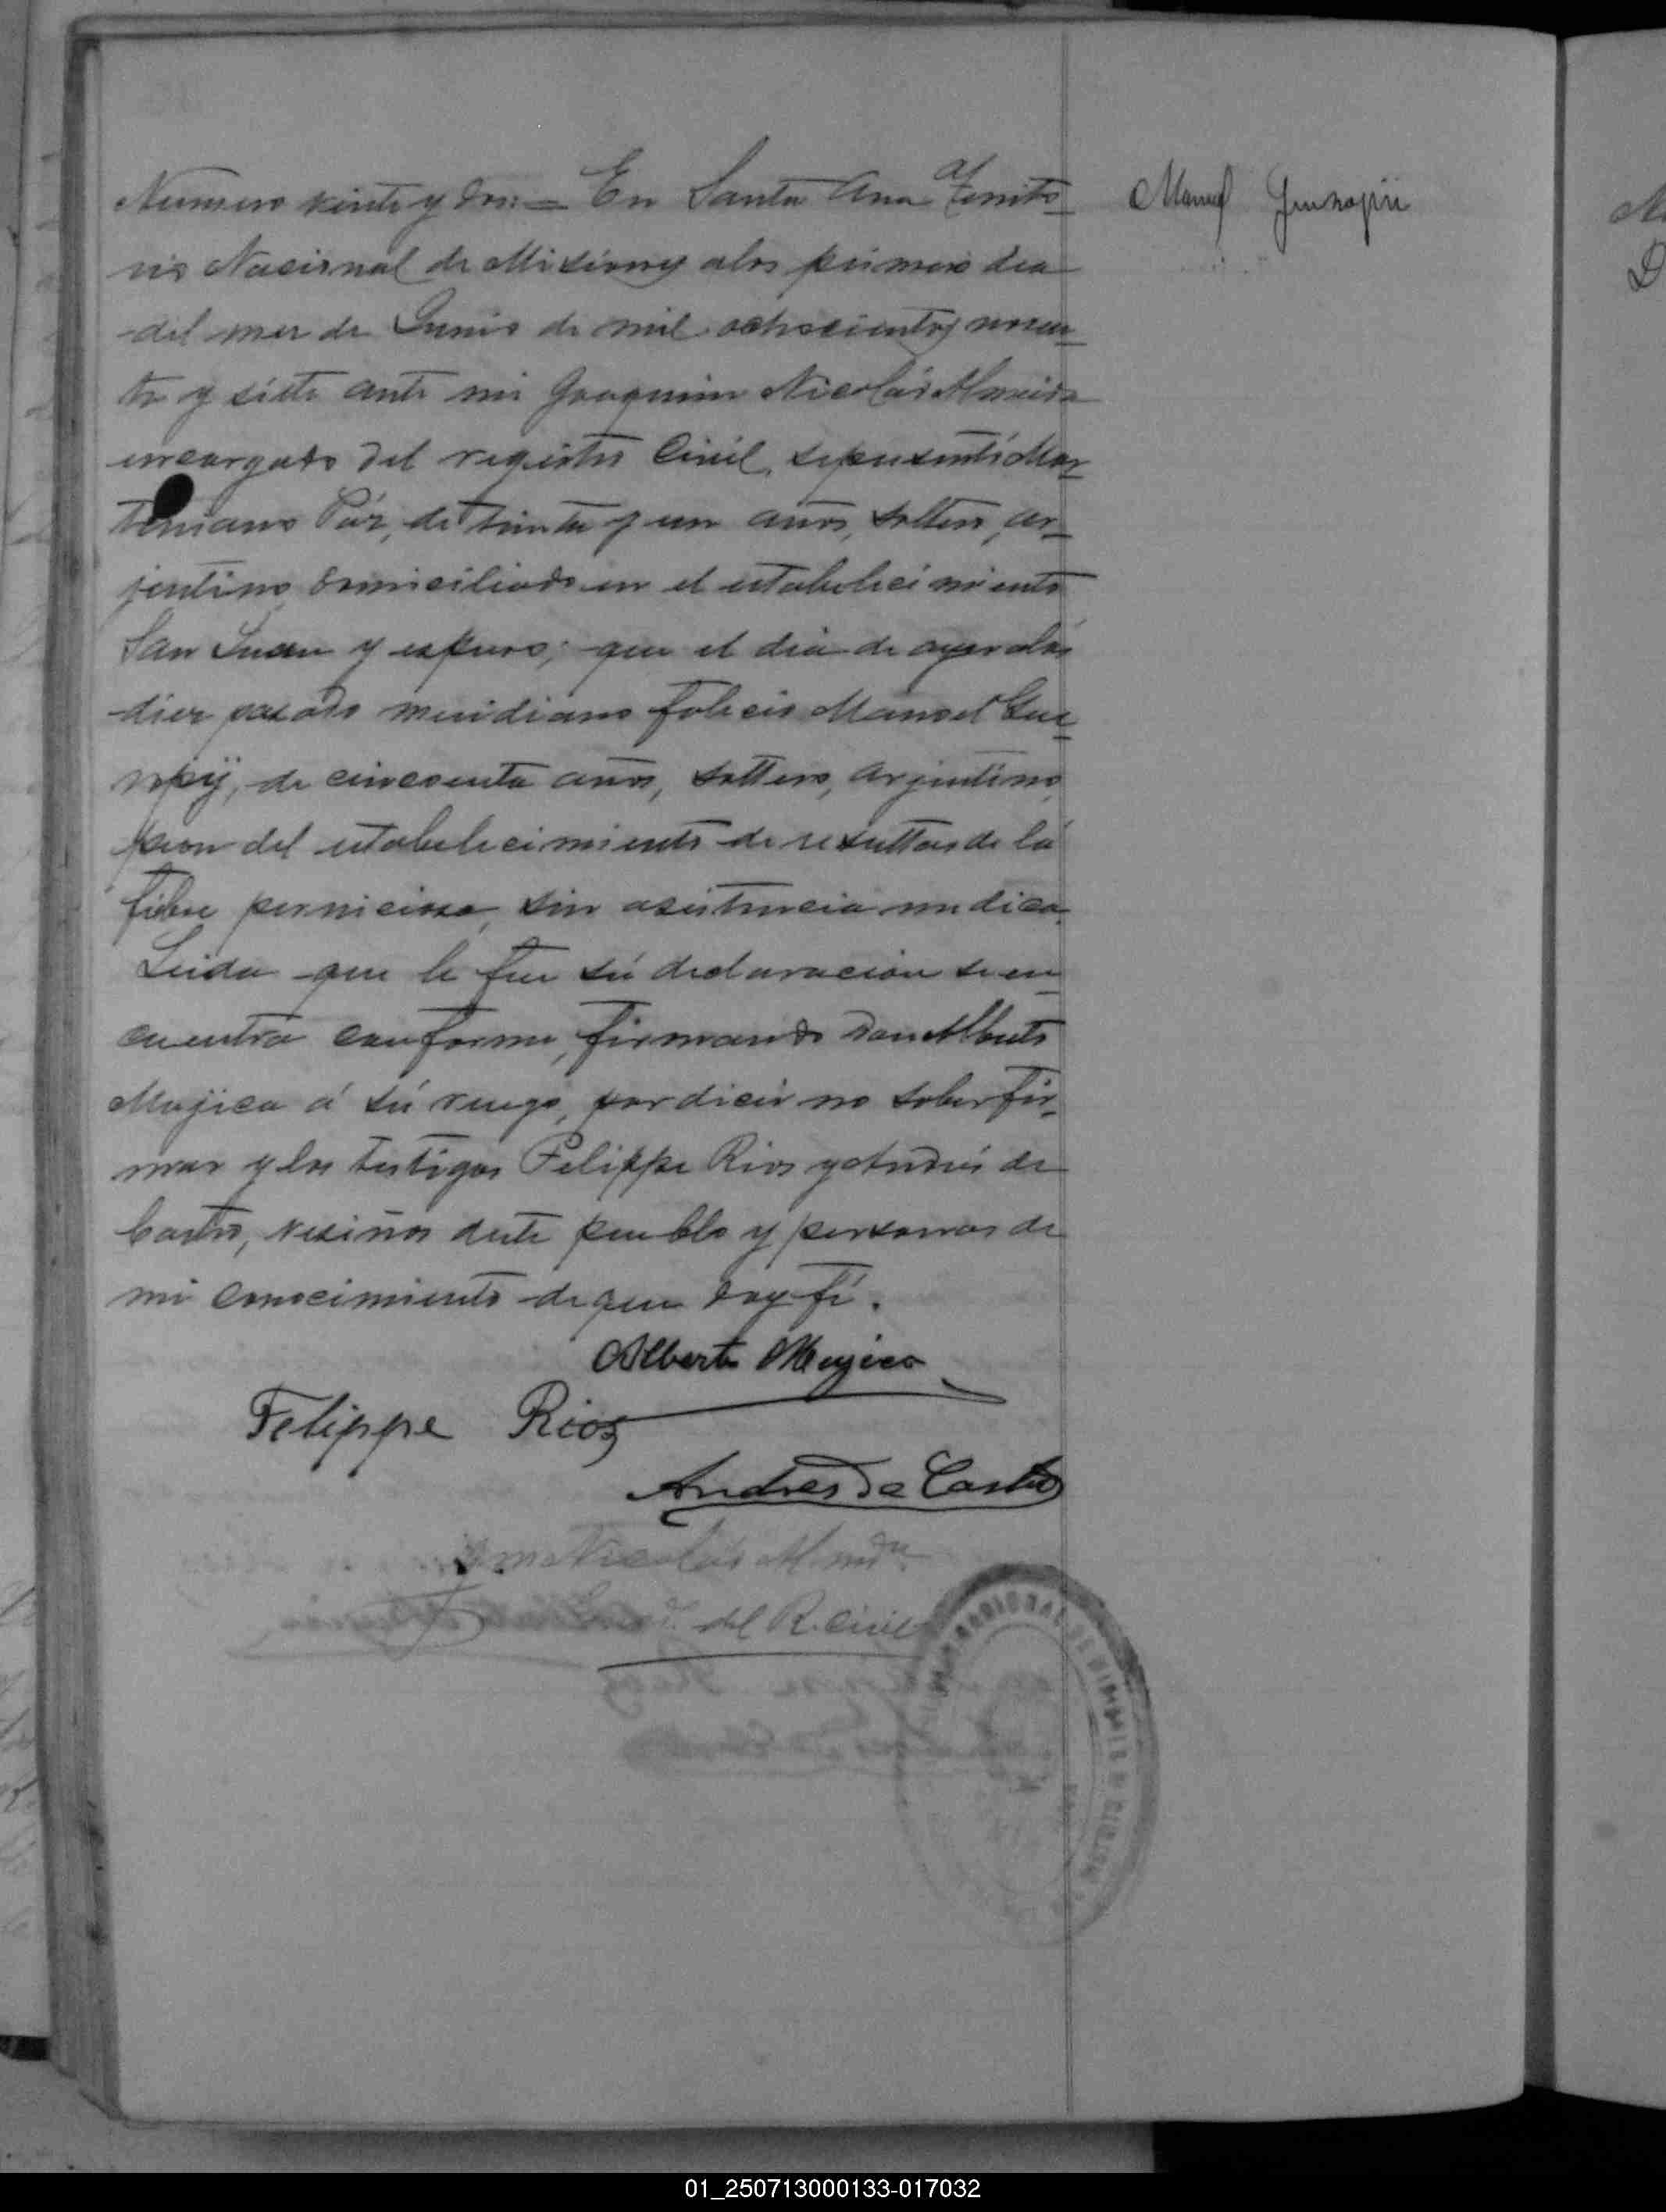 Numero veinte y dos: = En Santa Ana Territo-
rio Nacional de Misiones alos primero dia
del mes de Junio de mil ochocientos noven-
ta y siete ante mi Joaquim Nicolás Almeida
encargado del registro Civil, se presentó Mar-
teniano Páz, de trinta y un años, soltero, ar-
jentino domiciliado en el estabelecimiento
San Juan y expuso; que el dia de ayer alas
diez pasado meridiano falecio Manoel Gue-
ropÿ, de cincoenta años, soltero, arjentino,
peon del estabelecimiento de resultas de la
fiebre perniciosa, sin asistencia medica.
Leida que le fue sú declaracion se en-
cuentra conforme, firmando Don Alberto
Mujica á sú ruego, por dicir no saber fir-
mar y los testigos Felippe Rios y Andrés de
Castro, vesiños deste pueblo y personas de
mi conocimiento de que doy fé.
Alberto Mujica
Felippe Rios
Andres de Castro
Nicolás
del R. Civil
Manuel
NACIONAL
01_250713000133-017032